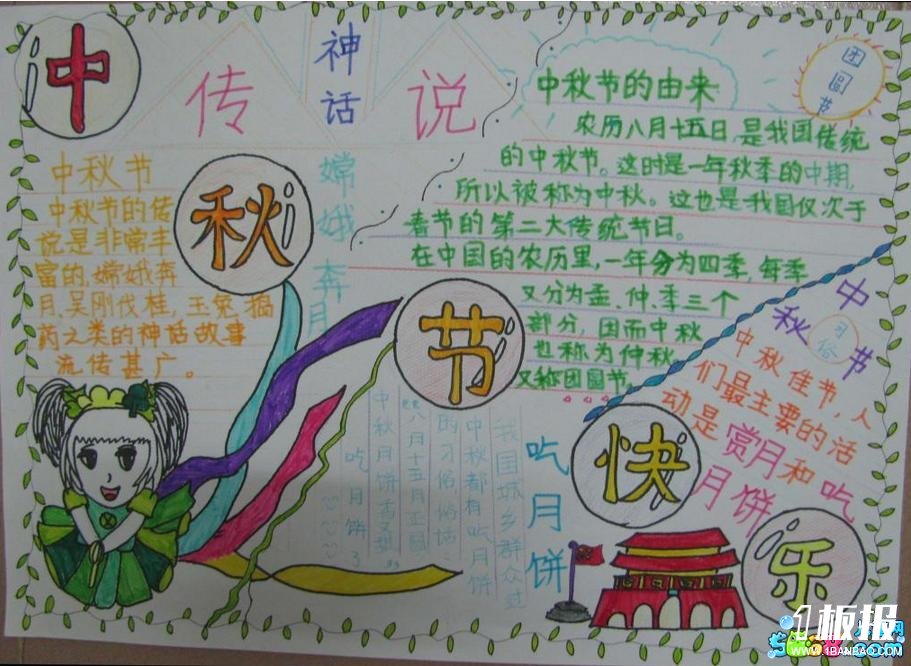 中秋节快乐
神话
传说
中秋节
中秋节的传
说是非常丰
富的,嫦娥奔
月,吴刚伐桂,玉兔捣
药之类的神话故事
流传甚广。
嫦娥奔月
团圆节
中秋节的由来
农历八月十五日,是我国传统
的中秋节。这时是一年秋季的中期,
所以被称为中秋。这也是我国仅次于
春节的第二大传统节日。
在中国的农历里,一年分为四季,每季
又分为孟、仲、季三个
部分,因而中秋
也称为仲秋。
又称团圆节。
中秋节
习俗
中秋佳节,人
们最主要的活
动是赏月和吃
月饼
吃月饼
我国城乡群众过
中秋都有吃月饼
的习俗,俗话:
八月十五月正圆
中秋月饼香又甜
吃月饼了
1板报
WWW.1BANBAO.COM